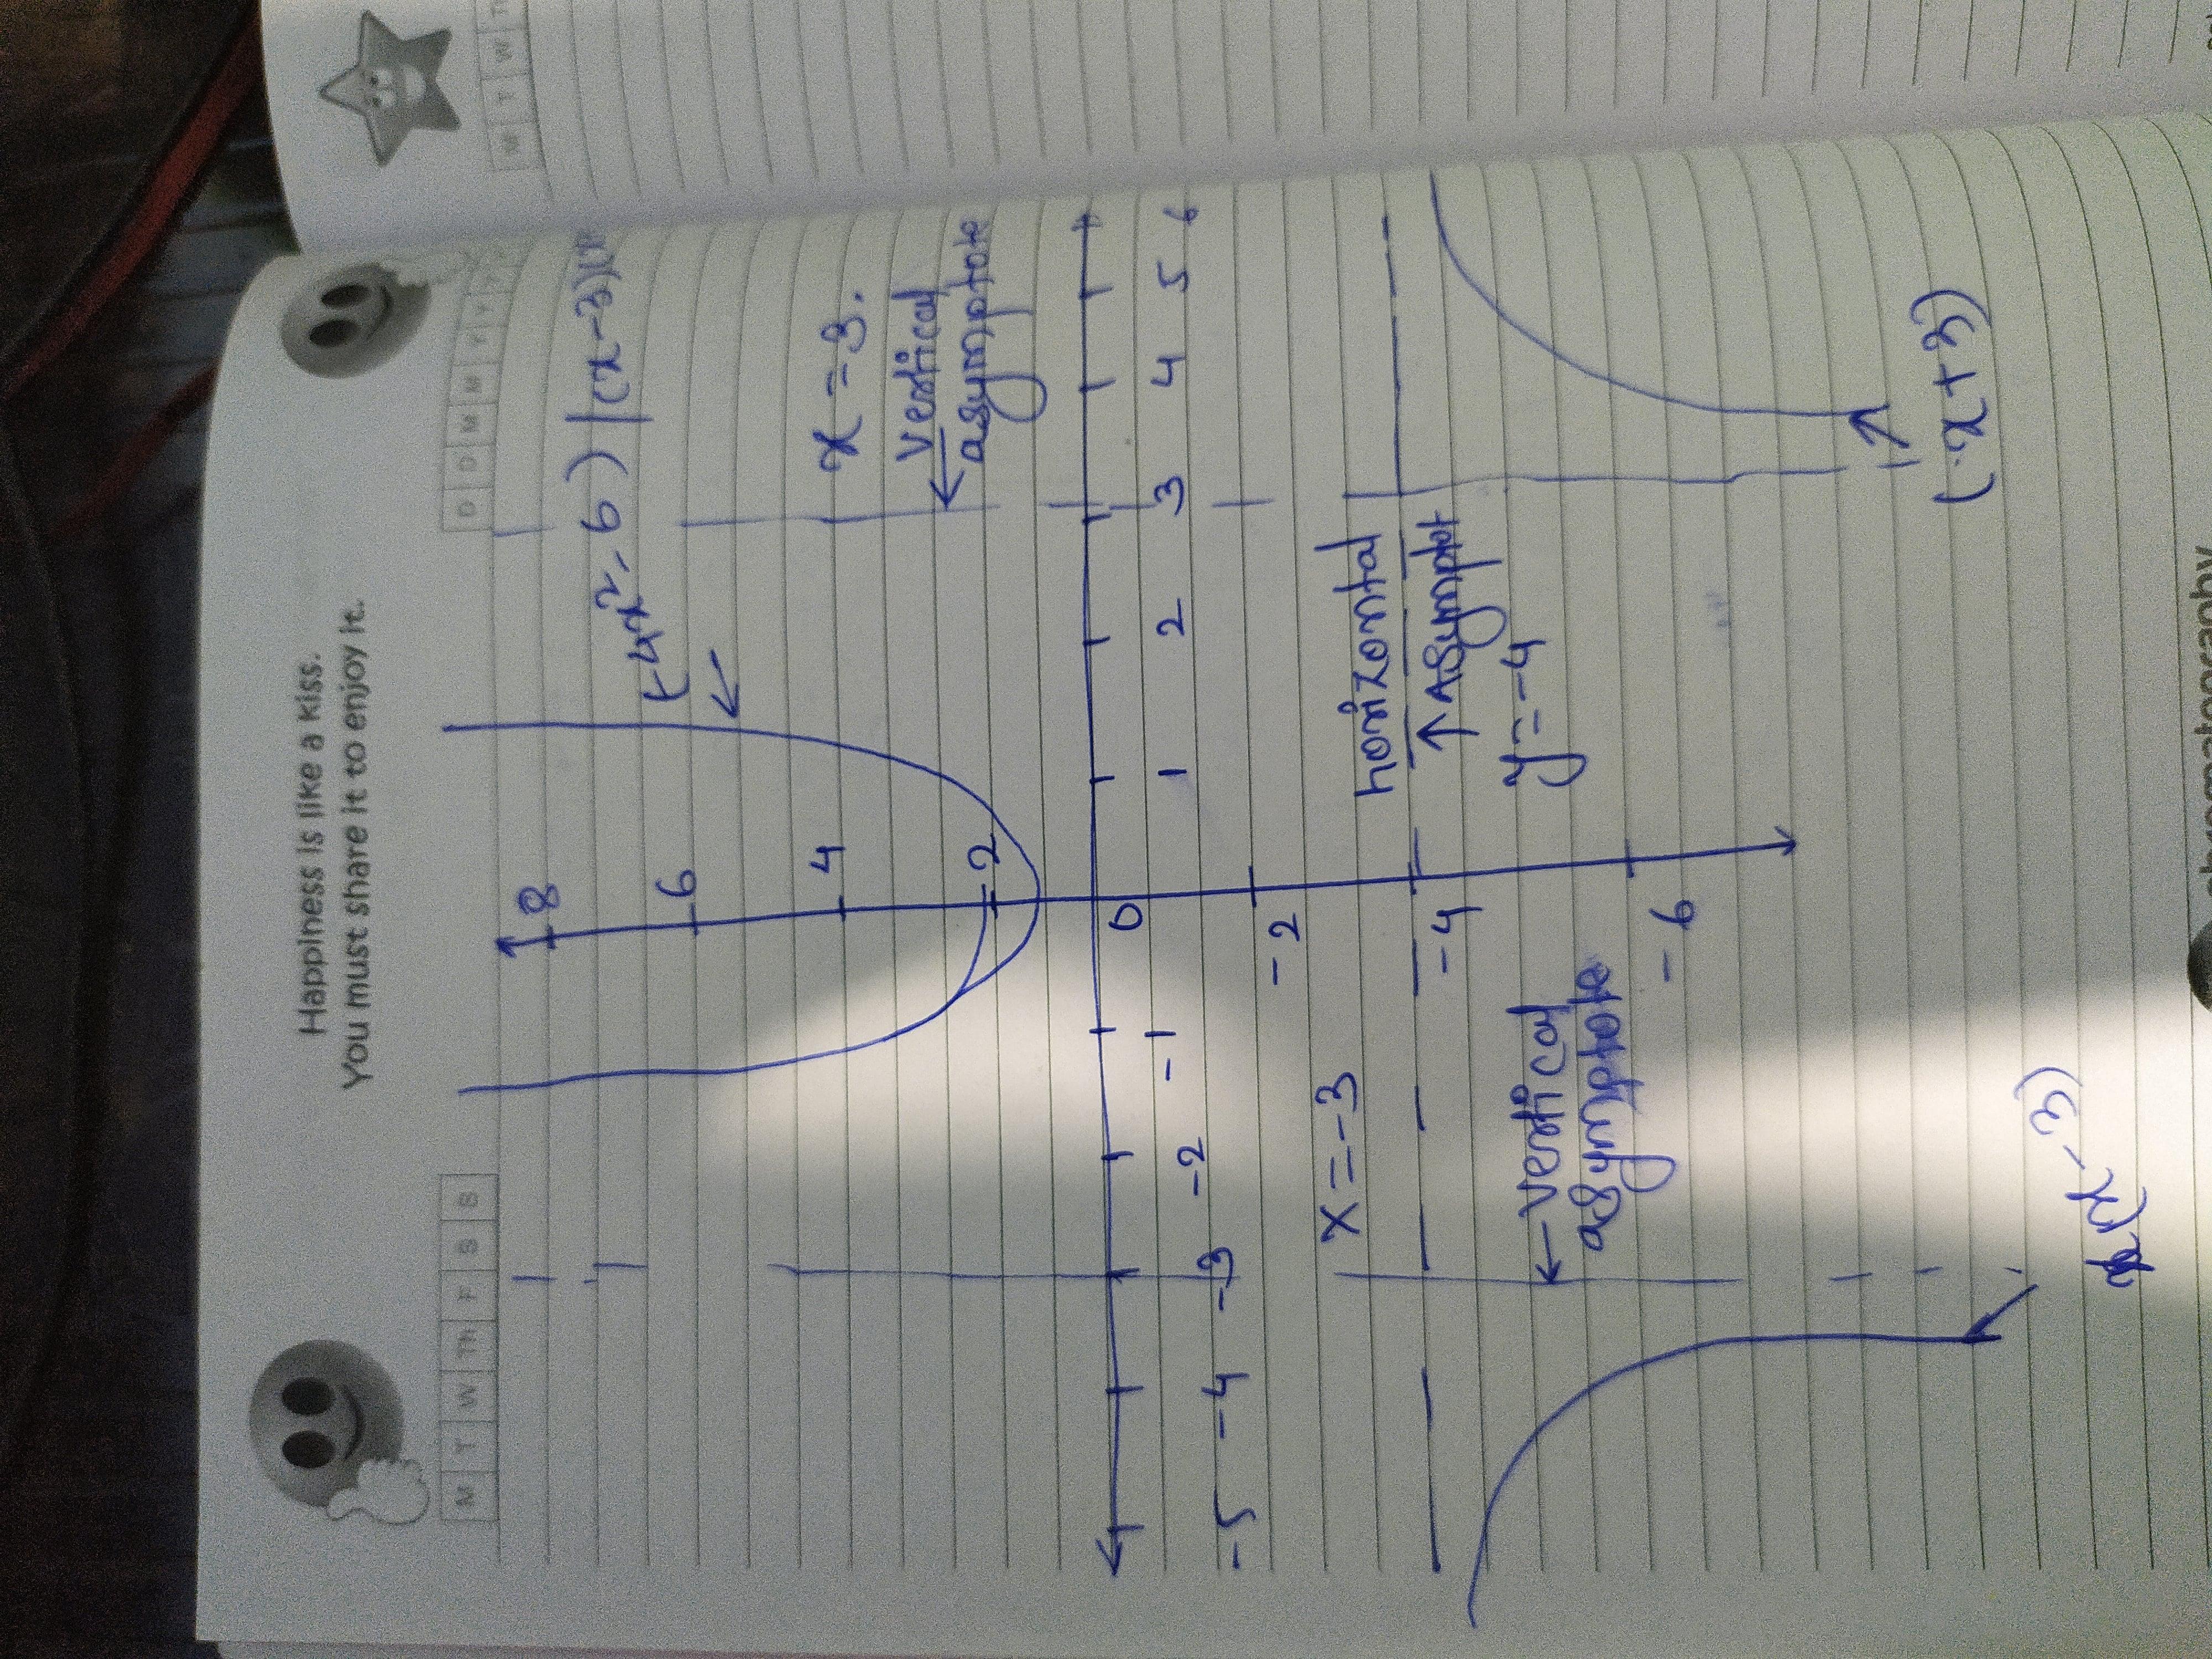 Happiness is like a kiss.
You must share it to enjoy it.
M T W Th F S S
D D M M Y Y
M T W
8
(-4x²-6) | (x-3)(x
6
x=3.
4
vertical
asymptote
2
-5 -4 -3 -2 -1 0 1 2 3 4 5 6
-2
x=-3
horizontal
Asymptot
-4
y=-4
vertical
asymptote
-6
(x+3)
(x-3)